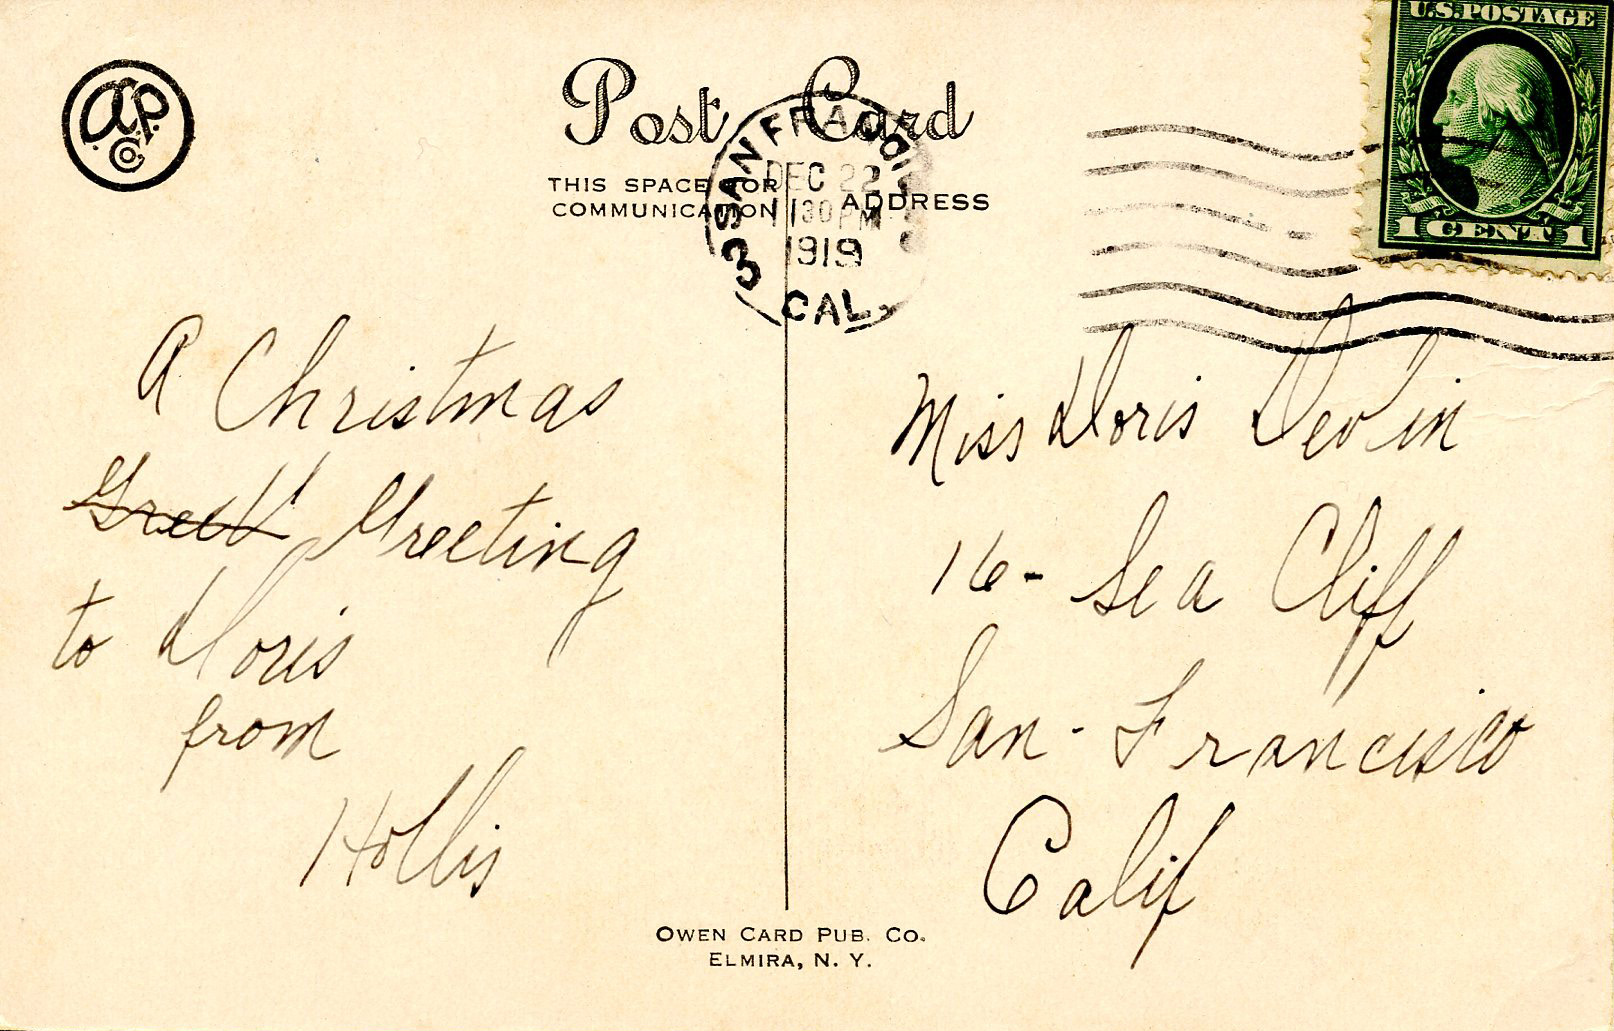 A.P. Co.
Post Card
THIS SPACE FOR COMMUNICATION
ADDRESS
U.S. POSTAGE
1 CENT 1
SAN FRANCISCO
DEC 22
1130 PM
1919
3 CAL.
A Christmas
Greeting
to Doris
from
Hollis
Miss Doris Devlin
16 - Sea Cliff
San - Francisco
Calif
OWEN CARD PUB. CO.
ELMIRA, N. Y.